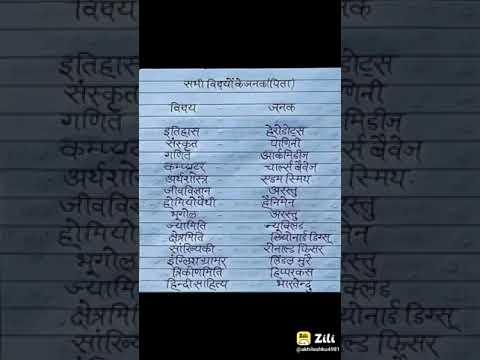 सभी विषयों के जनक(पिता)
विषय जनक
इतिहास - हेरोडोट्स
संस्कृत - पाणिनी
गणित - आर्कमिडीज
कम्प्यूटर - चार्ल्स बैवेज
अर्थशास्त्र - एडम स्मिथ
जीवविज्ञान - अरस्तु
होमियोपैथी - हैनिमैन
भूगोल - अरस्तु
ज्यामिति - न्यूक्लिड
क्षेत्रमिति - लियोनार्ड डिग्स्
सांख्यिकी - रोनाल्ड फिसर
इंग्लिश ग्रामर - लिंडल मुरै
त्रिकोणमिति - हिप्परकस
हिन्दी साहित्य - भारतेन्दु
Zili
@akhileshku4981